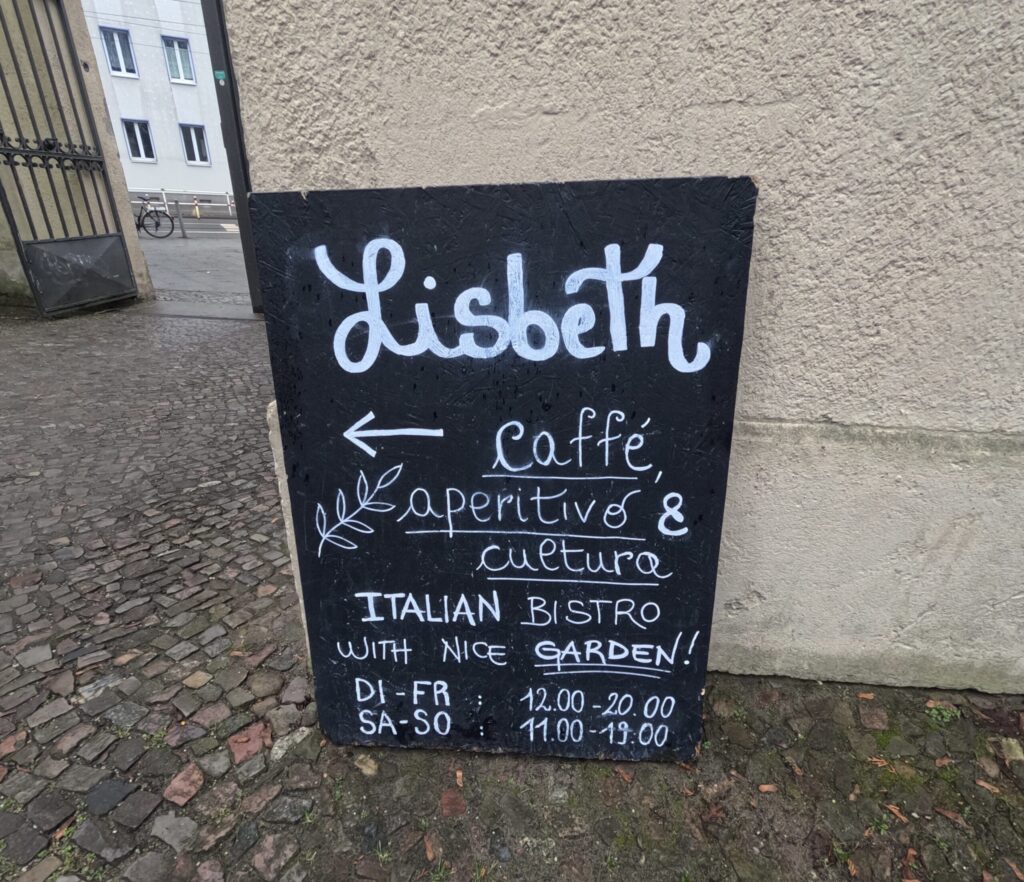 Lisbeth
← caffé,
aperitivo &
cultura
ITALIAN BISTRO
WITH NICE GARDEN!
DI-FR : 12.00-20.00
SA-SO : 11.00-19.00